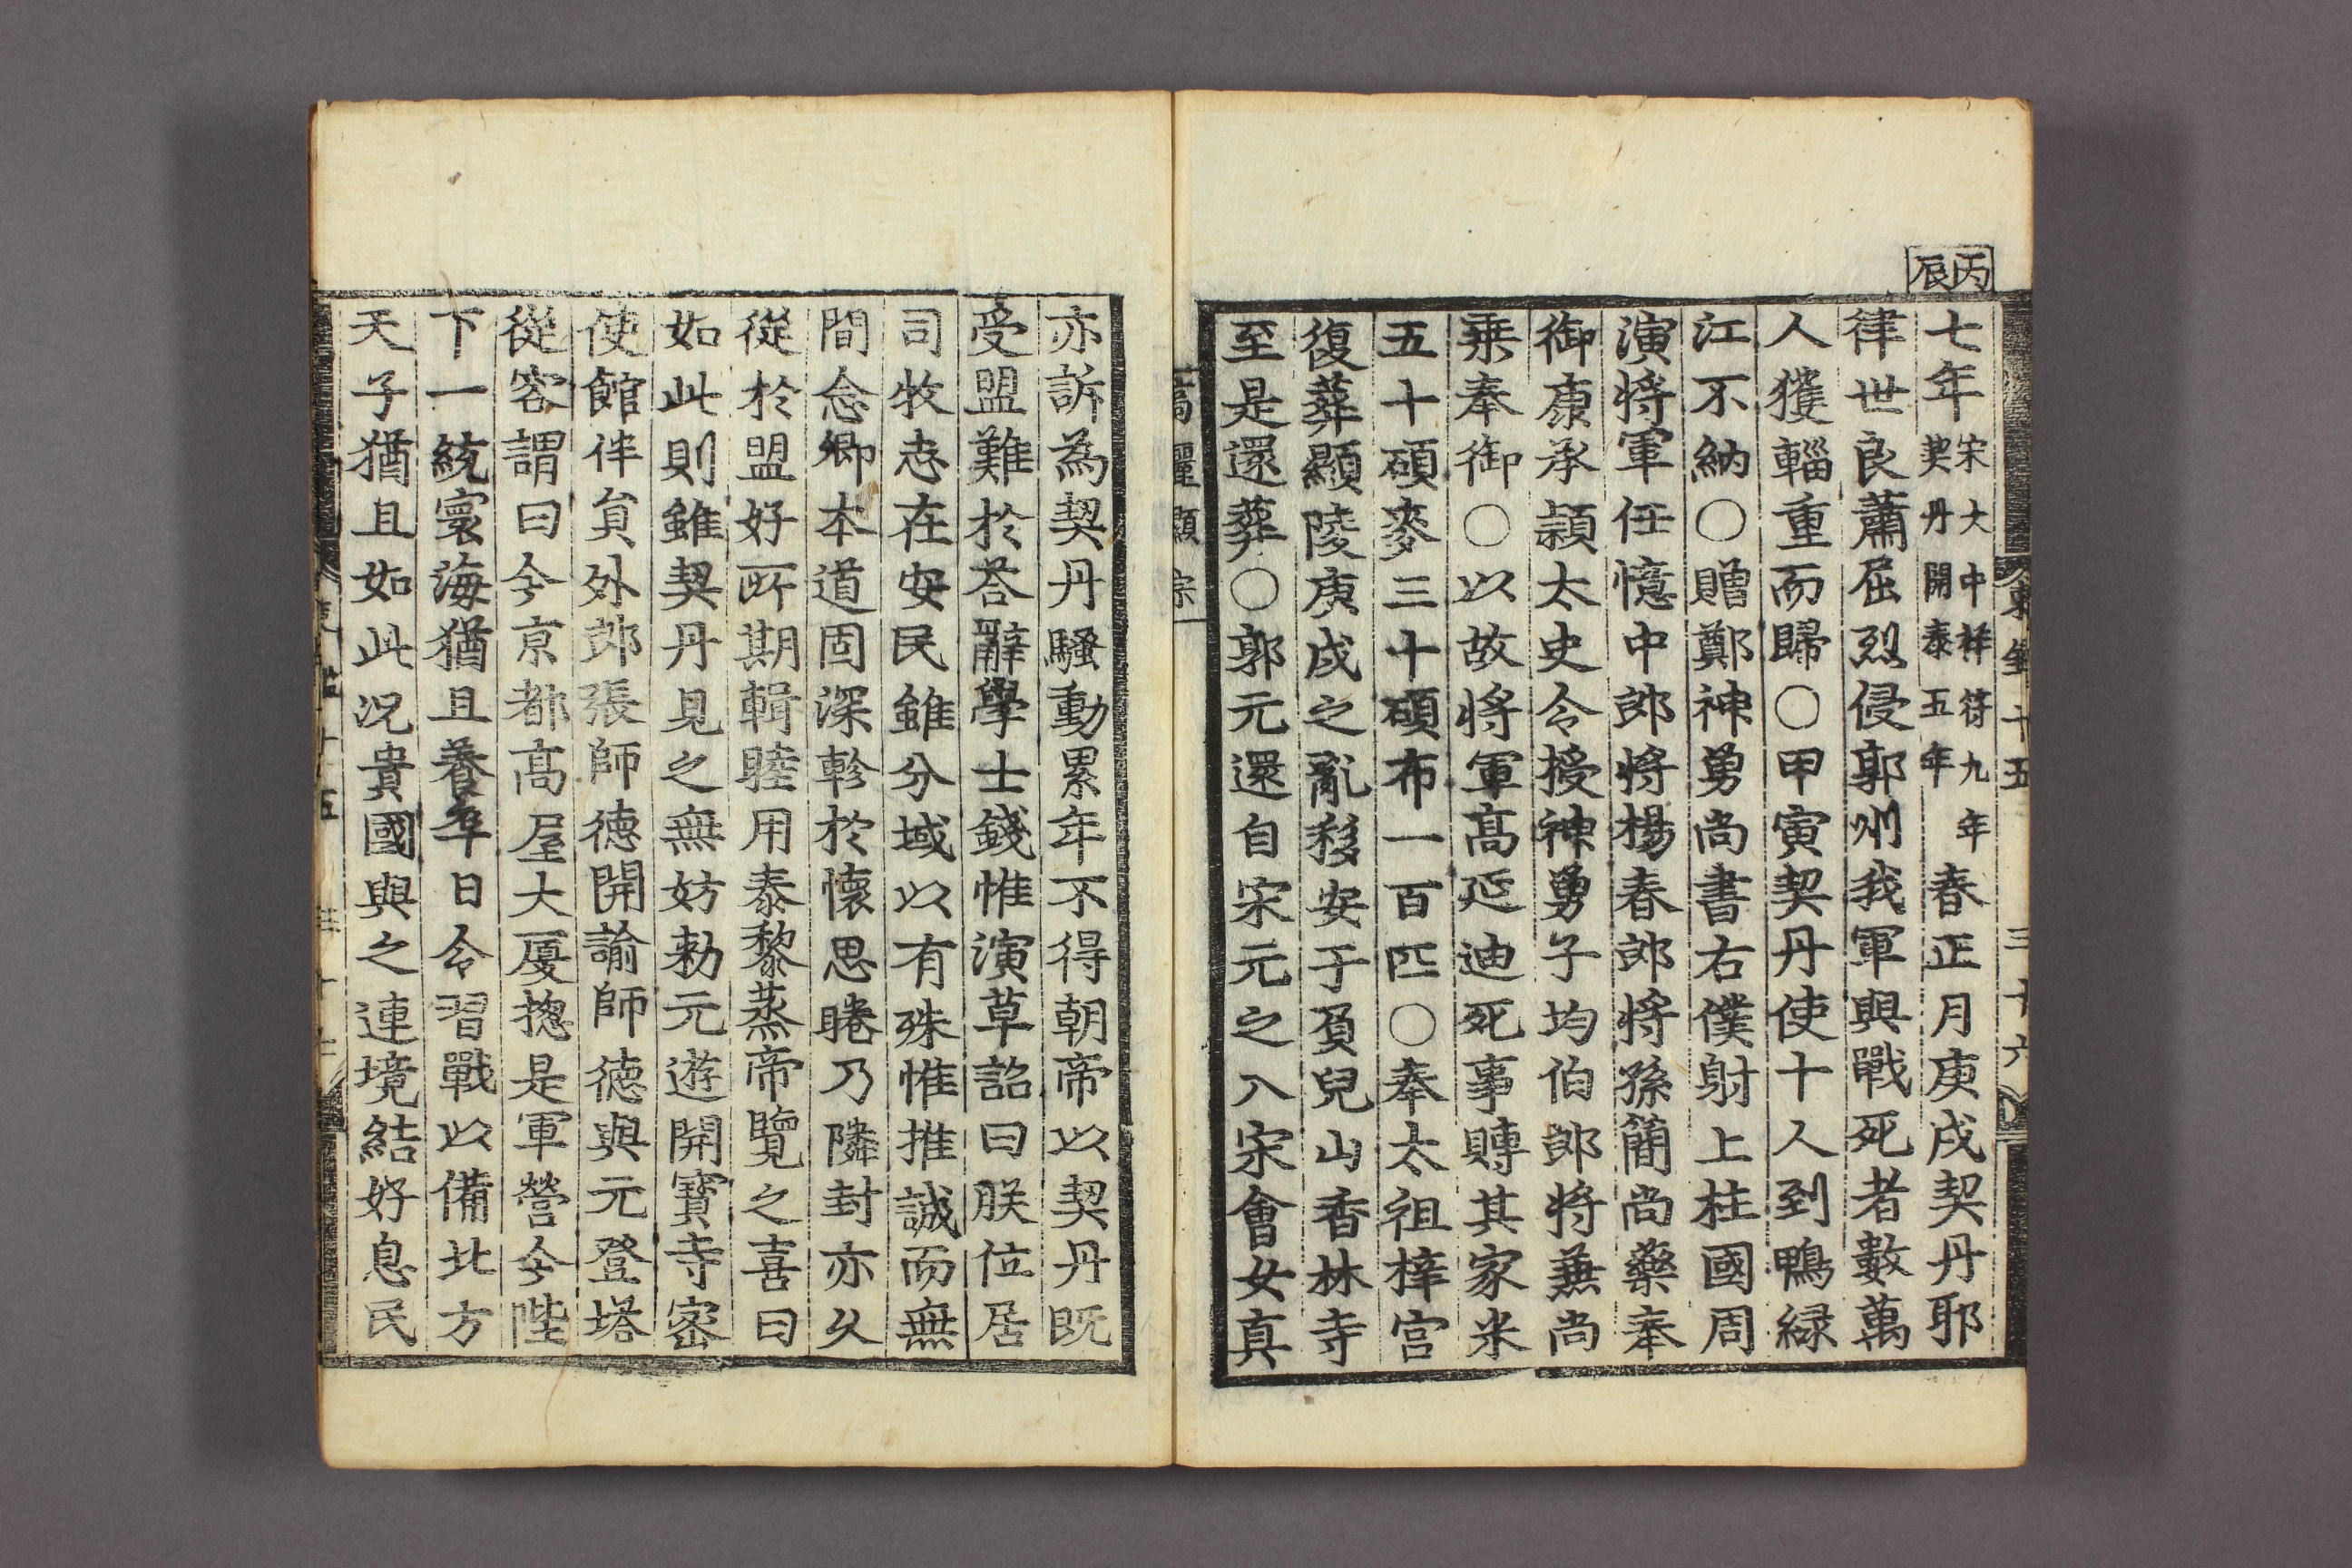 丙辰
七年宋大中祥符九年契丹開泰五年春正月庚戌契丹耶
律世良蕭屈烈侵郭州我軍與戰死者數萬
人獲輜重而歸○甲寅契丹使十人到鴨綠
江不納○贈鄭神勇尚書右僕射上柱國周
演將軍任憶中郎將楊春郎將孫簡尚藥奉
御康承穎太史令授神勇子均伯郎將兼尚
乘奉御○以故將軍高延迪死事賻其家米
五十碩麥三十碩布一百匹○奉太祖梓宮
復葬顯陵庚戌之亂移安于負兒山香林寺
至是還葬○郭元還自宋元之入宋會女真
高麗顯宗
亦訴為契丹騷動累年不得朝帝以契丹既
受盟難於荅辭學士錢惟演草詔曰朕位居
司牧志在安民雖分域以有殊惟推誠而無
間念卿本道固深軫於懷思睠乃隣封亦久
從於盟好所期輯睦用泰黎蒸帝覽之喜曰
如此則雖契丹見之無妨勑元遊開寶寺密
使館伴負外郎張師德開諭師德與元登塔
從容謂曰今京都高屋大廈摠是軍營今陛
下一統寰海猶且養卒日令習戰以備北方
天子猶且如此况貴國與之連境結好息民